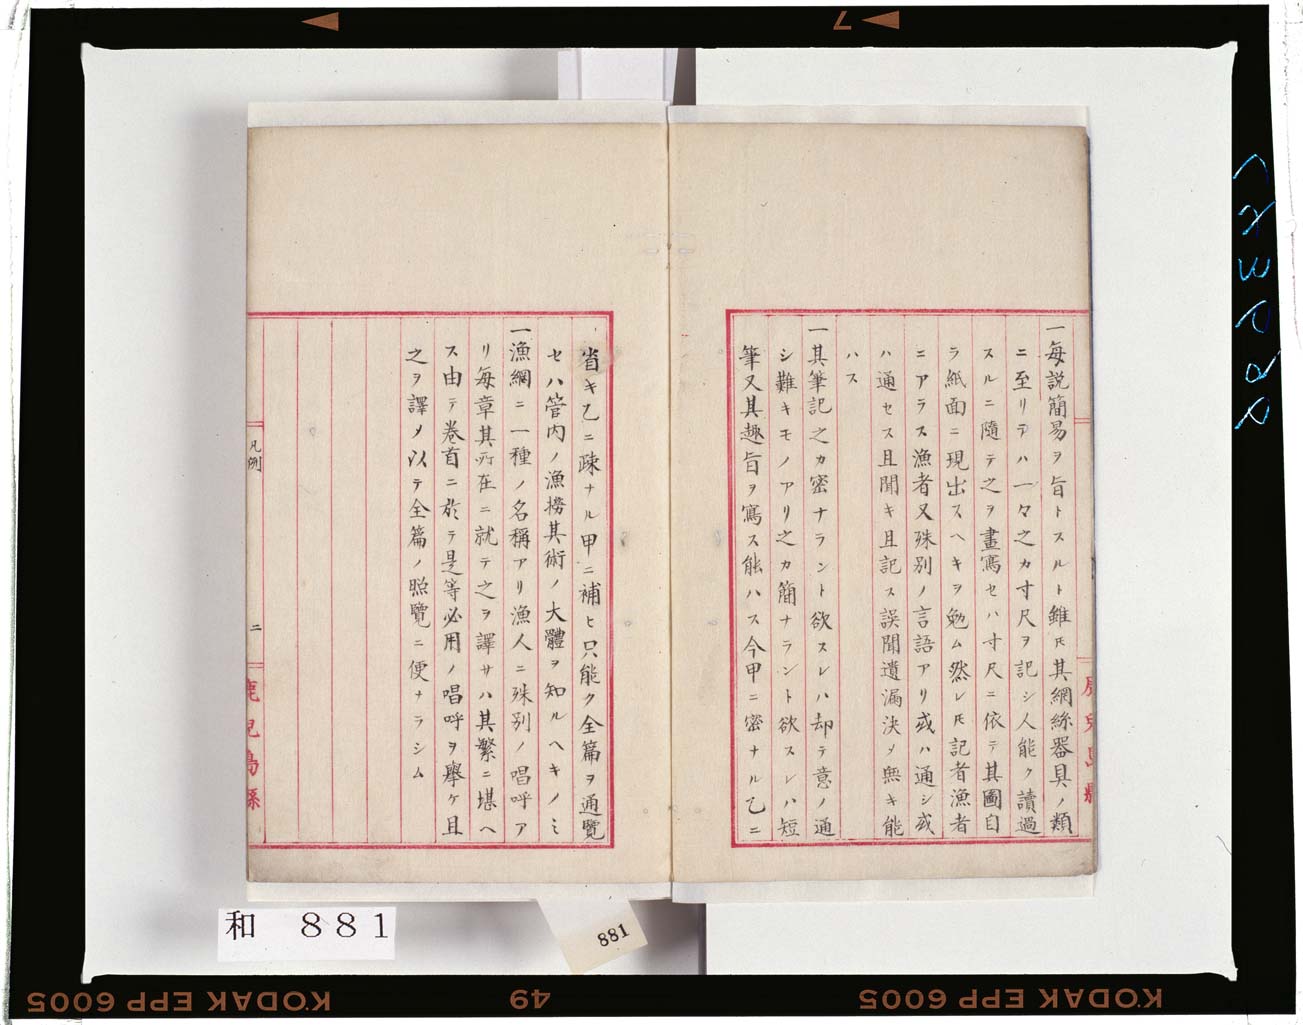 一每説簡易ヲ旨トスルト雖モ其網絲器具ノ類
ニ至リテハ一々之カ寸尺ヲ記シ人能ク讀過
スルニ隨テ之ヲ畫寫セハ寸尺ニ依テ其圖自
ラ紙面ニ現出スヘキヲ勉ム然レ𪜈記者漁者
ニアラス漁者又殊別ノ言語アリ或ハ通シ或
ハ通セス且聞キ且記ス誤聞遺漏決メ無キ能
ハス
一其筆記之カ密ナラント欲スレハ却テ意ノ通
シ難キモノアリ之カ簡ナラント欲スレハ短
筆又其趣旨ヲ寫ス能ハス今甲ニ密ナル乙ニ
省キ乙ニ疎ナル甲ニ補ヒ只能ク全篇ヲ通覽
セハ管内ノ漁撈其術ノ大體ヲ知ルヘキノミ
一漁網ニ一種ノ名稱アリ漁人ニ殊別ノ唱呼ア
リ每章其所在ニ就テ之ヲ譯サハ其繁ニ堪ヘ
ス由テ卷首ニ於テ是等必用ノ唱呼ヲ擧ケ且
之ヲ譯メ以テ全篇ノ照覽ニ便ナラシム
凡例
二
鹿兒島縣
鹿兒島縣
和 881
881
7
49
KODAK EPP 6005
KODAK EPP 6005